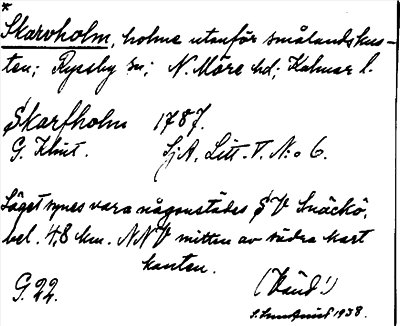 *
Skarvholm, holme utanför smålandskus-
ten; Ryssby sn; N. Möre hd; Kalmar l.
Skarfholm 1787.
G. Klint. SjA. Litt. V. N:o 6.
Läget synes vara någonstädes SV Snäckö,
bel. 4,8 km. NNV mitten av södra kart
kanten.
G. 22. (Vänd!)
1938.